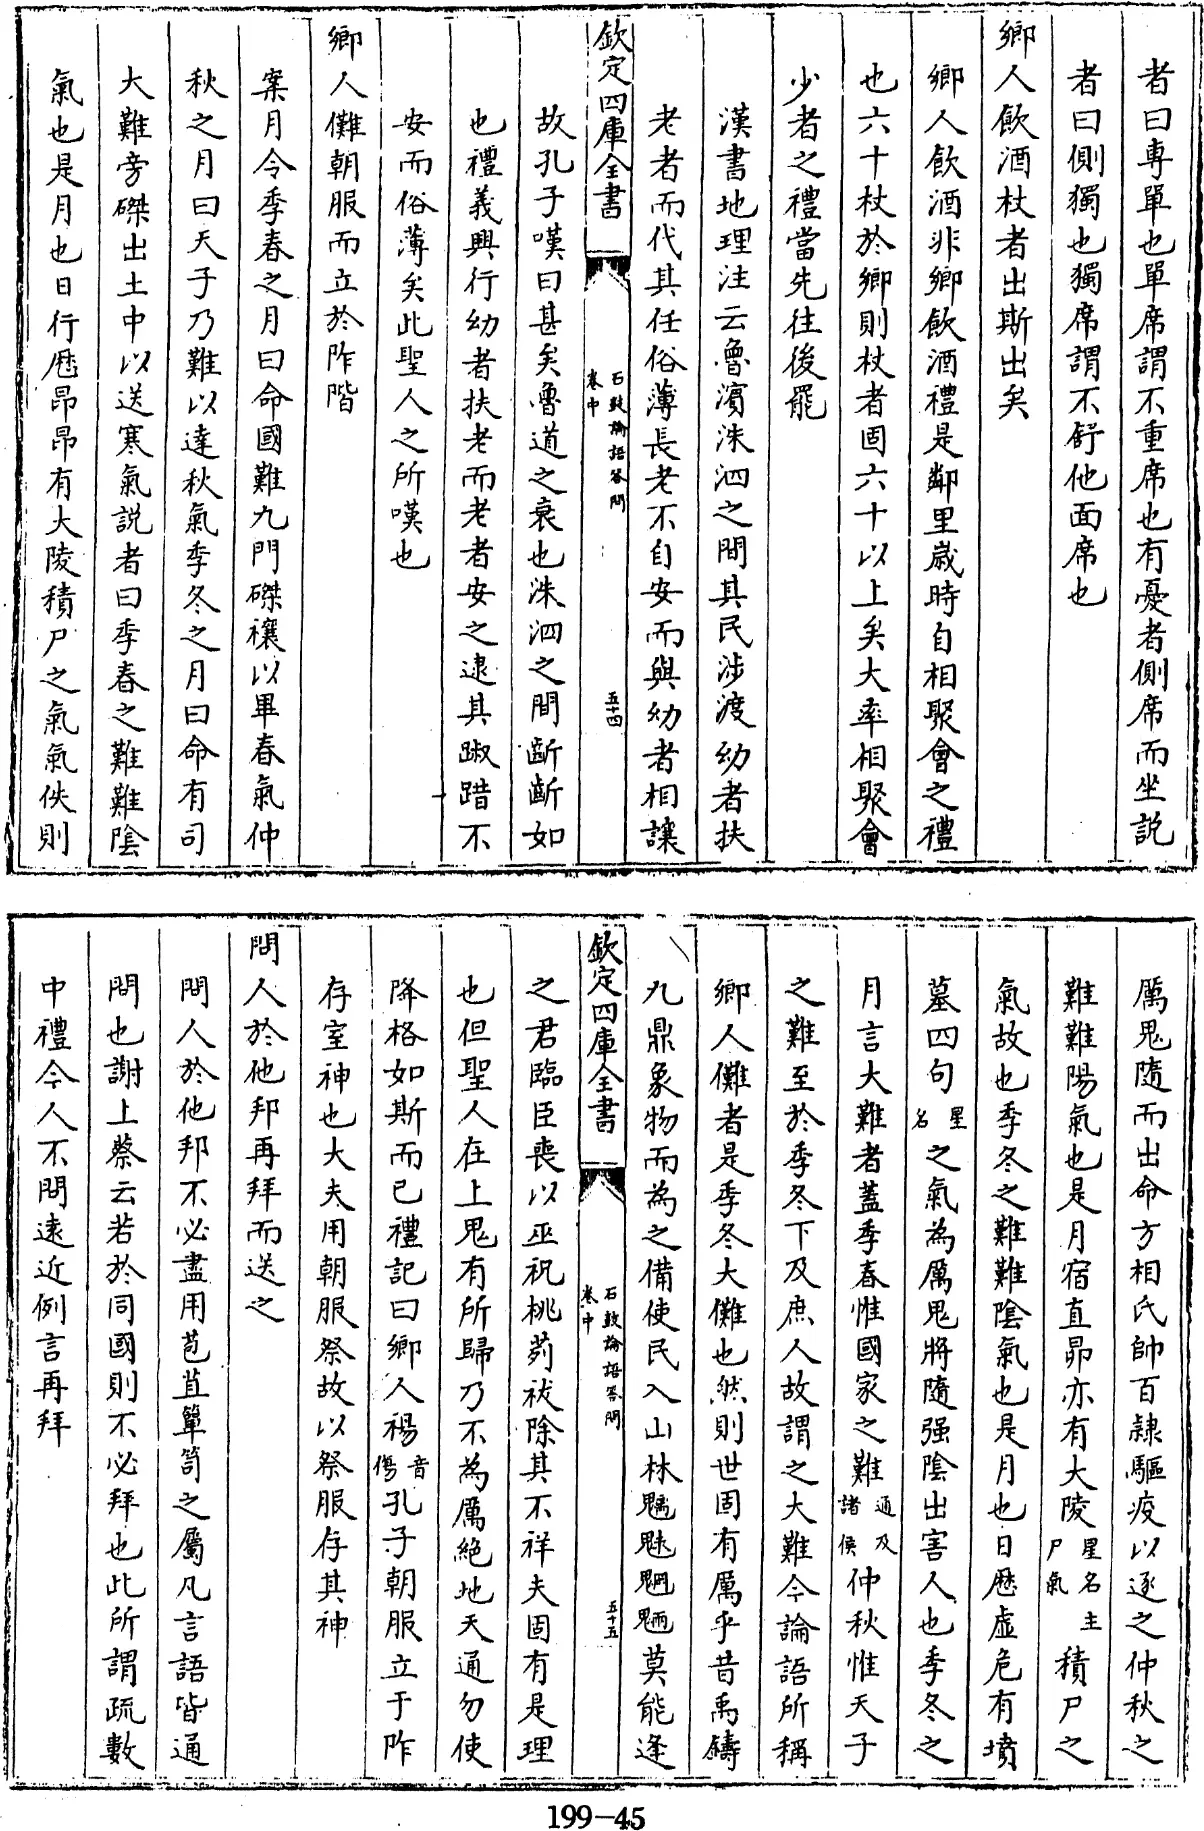 者曰專單也單席謂不重席也有憂者側席而坐説
者曰側獨也獨席謂不舒他面席也
鄉人飲酒杖者出斯出矣
鄉人飲酒非鄉飲酒禮是鄰里歲時自相聚會之禮
也六十杖於鄉則杖者固六十以上矣大率相聚會
少者之禮當先往後罷
漢書地理注云魯濱洙泗之間其民涉渡幼者扶
老者而代其任俗薄長老不自安而與幼者相讓
欽定四庫全書
石鼓論語答問
卷中
五十四
故孔子嘆曰甚矣魯道之衰也洙泗之間齗齗如
也禮義興行幼者扶老而老者安之逮其踧踖不
安而俗薄矣此聖人之所嘆也
鄉人儺朝服而立於阼階
案月令季春之月曰命國難九門磔禳以畢春氣仲
秋之月曰天子乃難以達秋氣季冬之月曰命有司
大難旁磔出土中以送寒氣説者曰季春之難難陰
氣也是月也日行厯昴昴有大陵積尸之氣氣佚則
厲鬼隨而出命方相氏帥百隷驅疫以逐之仲秋之
難難陽氣也是月宿直昴亦有大陵星名主尸氣積尸之
氣故也季冬之難難陰氣也是月也日厯虛危有墳
墓四句星名之氣為厲鬼將隨强陰出害人也季冬之
月言大難者蓋季春惟國家之難通及諸侯仲秋惟天子
之難至於季冬下及庶人故謂之大難今論語所稱
鄉人儺者是季冬大儺也然則世固有厲乎昔禹鑄
九鼎象物而為之備使民入山林魑魅魍魎莫能逢
欽定四庫全書
石鼓論語答問
卷中
五十五
之君臨臣喪以巫祝桃茢祓除其不祥夫固有是理
也但聖人在上鬼有所歸乃不為厲絶地天通勿使
降格如斯而已禮記曰鄉人禓音傷孔子朝服立于阼
存室神也大夫用朝服祭故以祭服存其神
問人於他邦再拜而送之
問人於他邦不必盡用苞苴簞笥之屬凡言語皆通
問也謝上蔡云若於同國則不必拜也此所謂疏數
中禮今人不問遠近例言再拜
199-45